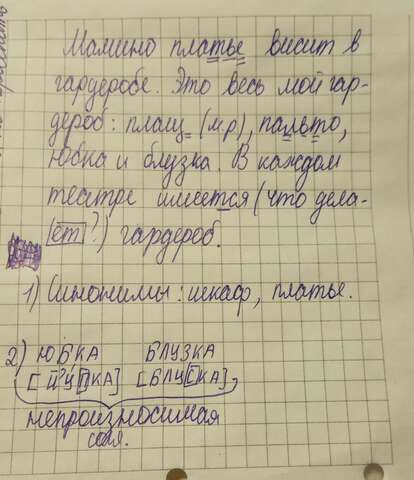 Мамино платье висит в
гардеробе. Это весь мой гар-
дероб: плащ (м.р), пальто,
юбка и блузка. В каждом
театре имеется (что дела-
ет?) гардероб.
1) Синонимы: шкаф, платье.
2) ЮБКА БЛУЗКА
[Й'УПКА] [БЛУСКА],
непроизносимая
согл.